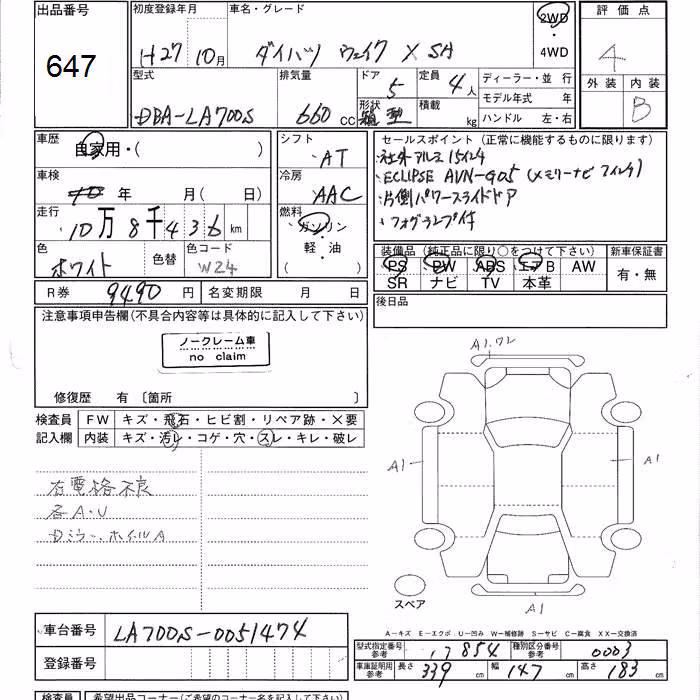 出品番号
647
初度登録年月
H27 10月
車名・グレード
ダイハツ ウェイク X SA
2WD
・
4WD
評価点
4
外装 内装
B
型式
DBA-LA700S
排気量
660 CC
ドア
5
形状
箱型
定員
4人
積載
kg
ディーラー・並 行
モデル年式 年
ハンドル 左・右
車歴
自家用・( )
車検
年 月( 日)
走行
10万8千436 km
色
ホワイト
色替
色コード
W24
シフト
AT
冷房
AAC
燃料
ガソリン
・
軽・油
セールスポイント(正常に機能するものに限ります)
・社外アルミ15インチ
・ECLIPSE AVN-G05 (メモリーナビ
・片側パワースライドドア
・フォグランプ付
装備品(純正品に限り○をつけて下さい)
PS PW ABS エアB AW
SR ナビ TV 本革
新車保証書
有・無
R券 9490 円
名変期限 月 日
後日品
注意事項申告欄(不具合内容等は具体的に記入して下さい)
ノークレーム車
no claim
修復歴 有 〔箇所 〕
検査員
記入欄
FW キズ・飛石・ヒビ割・リペア跡・×要
内装 キズ・汚レ・コゲ・穴・スレ・キレ・破レ
右電格不良
各A・U
ホイールA
A1.W2
A1
A1
A1
スペア
A―キズ E―エクボ U―凹み W―補修跡 S―サビ C―腐食 XX―交換済
車台番号 LA700S-0051474
登録番号
型式指定番号
参考
17854
種別区分番号
参考
0003
車庫証明用
参考
長さ 339 cm 幅 147 cm 高さ 183 cm
検査員 希望出品コーナー(ご希望のコーナー名を記入して下さい)